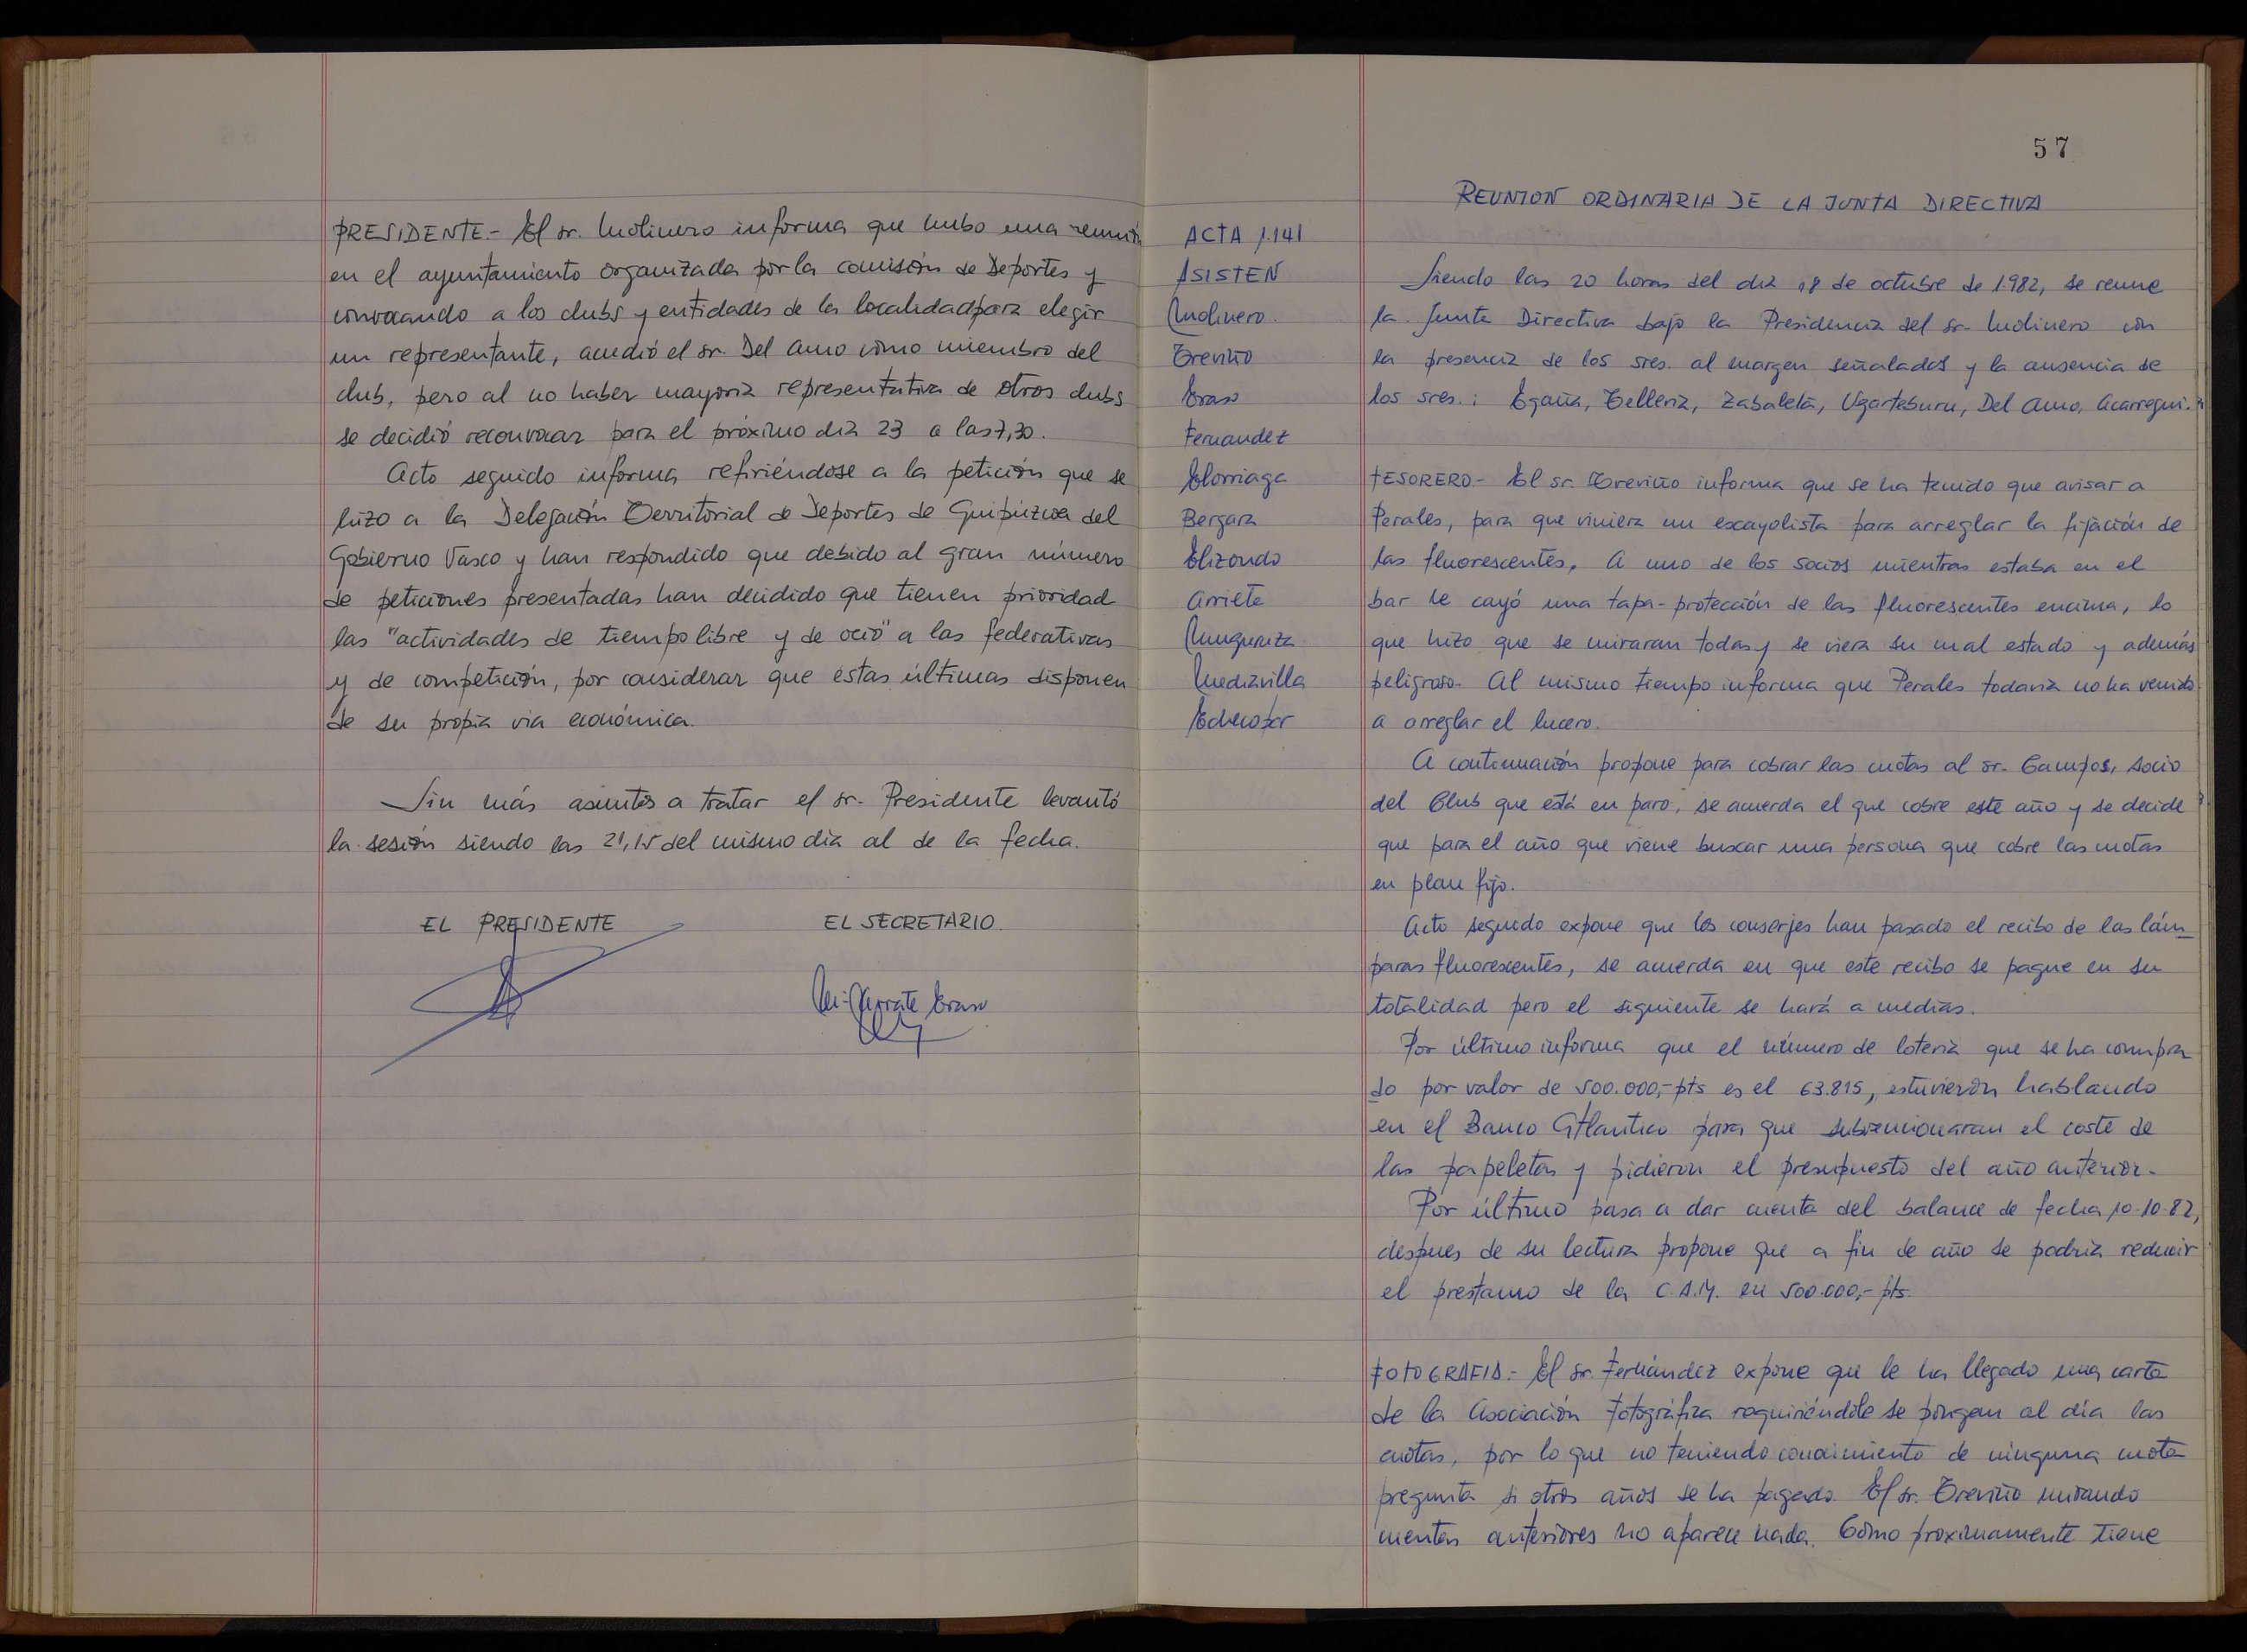 PRESIDENTE.- El sr. Molinero informa que hubo una reunión
en el ayuntamiento organizada por la comisión de Deportes y
convocando a los clubs y entidades de la localidad para elegir
un representante, acudió el sr. Del Amo como miembro del
club, pero al no haber mayoria representativa de otros clubs
se decidió reconvocar para el próximo dia 23 a las 7,30.
Acto seguido informa refiriéndose a la petición que se
hizo a la Delegación Territorial de Deportes de Guipúzcoa del
Gobierno Vasco y han respondido que debido al gran número
de peticiones presentadas han decidido que tienen prioridad
las "actividades de tiempo libre y de ocio" a las federativas
y de competición, por considerar que éstas últimas disponen
de su propia via económica.
Sin más asuntos a tratar el sr. Presidente levantó
la sesión siendo las 21,15 del mismo dia al de la fecha.
EL PRESIDENTE EL SECRETARIO.
Arrate Eraso
57
REUNION ORDINARIA DE LA JUNTA DIRECTIVA
ACTA 1.141
ASISTEN
Molinero.
Treviño
Eraso
Fernandez
Elorriaga
Bergara
Elizondo
Arriete
Munguruza
Mediavilla
Echecopar
Siendo las 20 horas del dia 18 de octubre de 1.982, se reune
la Junta Directiva bajo la Presidencia del sr. Molinero con
la presencia de los sres. al margen señalados y la ausencia de
los sres.: Egaña, Telleria, Zabaleta, Ugarteburu, Del Amo, Acarregui.
TESORERO.- El sr. Treviño informa que se ha tenido que avisar a
Perales, para que viniera un escayolista para arreglar la fijación de
las fluorescentes. A uno de los socios mientras estaba en el
bar le cayó una tapa-protección de las fluorescentes encima, lo
que hizo que se miraran todas y se viera su mal estado y además
peligroso. Al mismo tiempo informa que Perales todavia no ha venido
a arreglar el lucero.
A continuación propone para cobrar las cuotas al sr. Campos, socio
del Club que está en paro, se acuerda el que cobre este año y se decide
que para el año que viene buscar una persona que cobre las cuotas
en plan fijo.
Acto seguido expone que los conserjes han pasado el recibo de las lám_
paras fluorescentes, se acuerda en que este recibo se pague en su
totalidad pero el siguiente se hará a medias.
Por último informa que el número de loteria que se ha compra
do por valor de 500.000,-pts es el 63.815, estuvieron hablando
en el Banco Atlantico para que subvencionaran el coste de
las papeletas y pidieron el presupuesto del año anterior.
Por último pasa a dar cuenta del balance de fecha 10-10-82,
despues de su lectura propone que a fin de año se podria reducir
el prestamo de la C.A.M. en 500.000,-pts.
FOTOGRAFIA.- El sr. Fernández expone que le ha llegado una carta
de la Asociación Fotográfica requiriéndole se pongan al día las
cuotas, por lo que no teniendo conocimiento de ninguna cuota
pregunta si otros años se ha pagado. El sr. Treviño mirando
cuentas anteriores no aparece nada. Como proximamente tiene